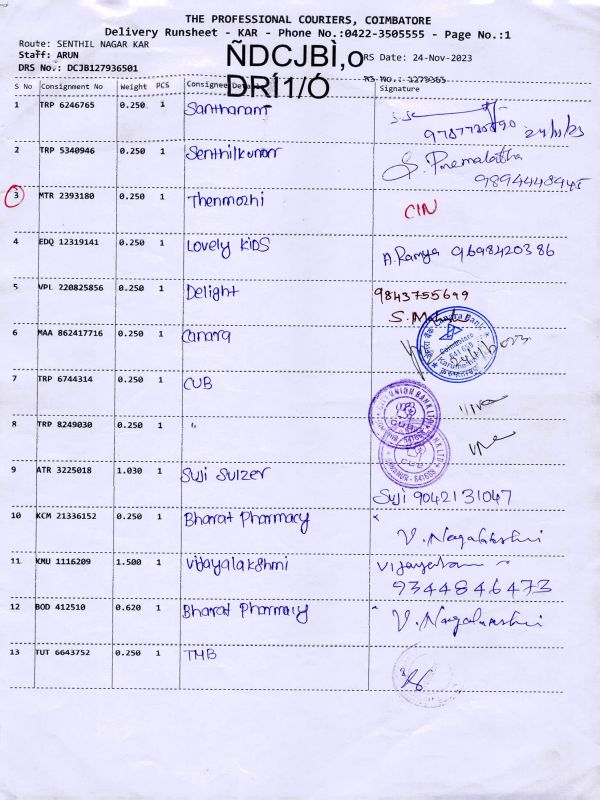 THE PROFESSIONAL COURIERS, COIMBATORE
Delivery Runsheet - KAR - Phone No.:0422-3505555 - Page No.:1
Route: SENTHIL NAGAR KAR
Staff: ARUN
DRS No.: DCJB127936501
ÑDCJBÌ,o
DRÍ1/Ó
DRS Date: 24-Nov-2023
S No Consignment No Weight PCS Consignee Details Signature
1 TRP 6246765 0.250 1 Santhanam
24/11/23
2 TRP 5340946 0.250 1 Senthilkumar S. Premalatha
9894448945
3 MTR 2393180 0.250 1 Thenmozhi CIN
4 EDQ 12319141 0.250 1 Lovely Kids A. Ramya 9698420386
5 VPL 220825856 0.250 1 Delight 9843755699
6 MAA 862417716 0.250 1 Canara
Canara Bank
Coimbatore
641 659
7 TRP 6744314 0.250 1 CUB
CITY UNION BANK LTD
CUB
8 TRP 8249030 0.250 1 "
CUB
9 ATR 3225018 1.030 1 Suji Sulzer Suji 9042131047
10 KCM 21336152 0.250 1 Bharat Pharmacy V. Nagalakshmi
11 KMU 1116209 1.500 1 Vijayalakshmi
9344846473
12 BOD 412510 0.620 1 Bharat Pharmacy V. Nagalakshmi
13 TUT 6643752 0.250 1 TMB